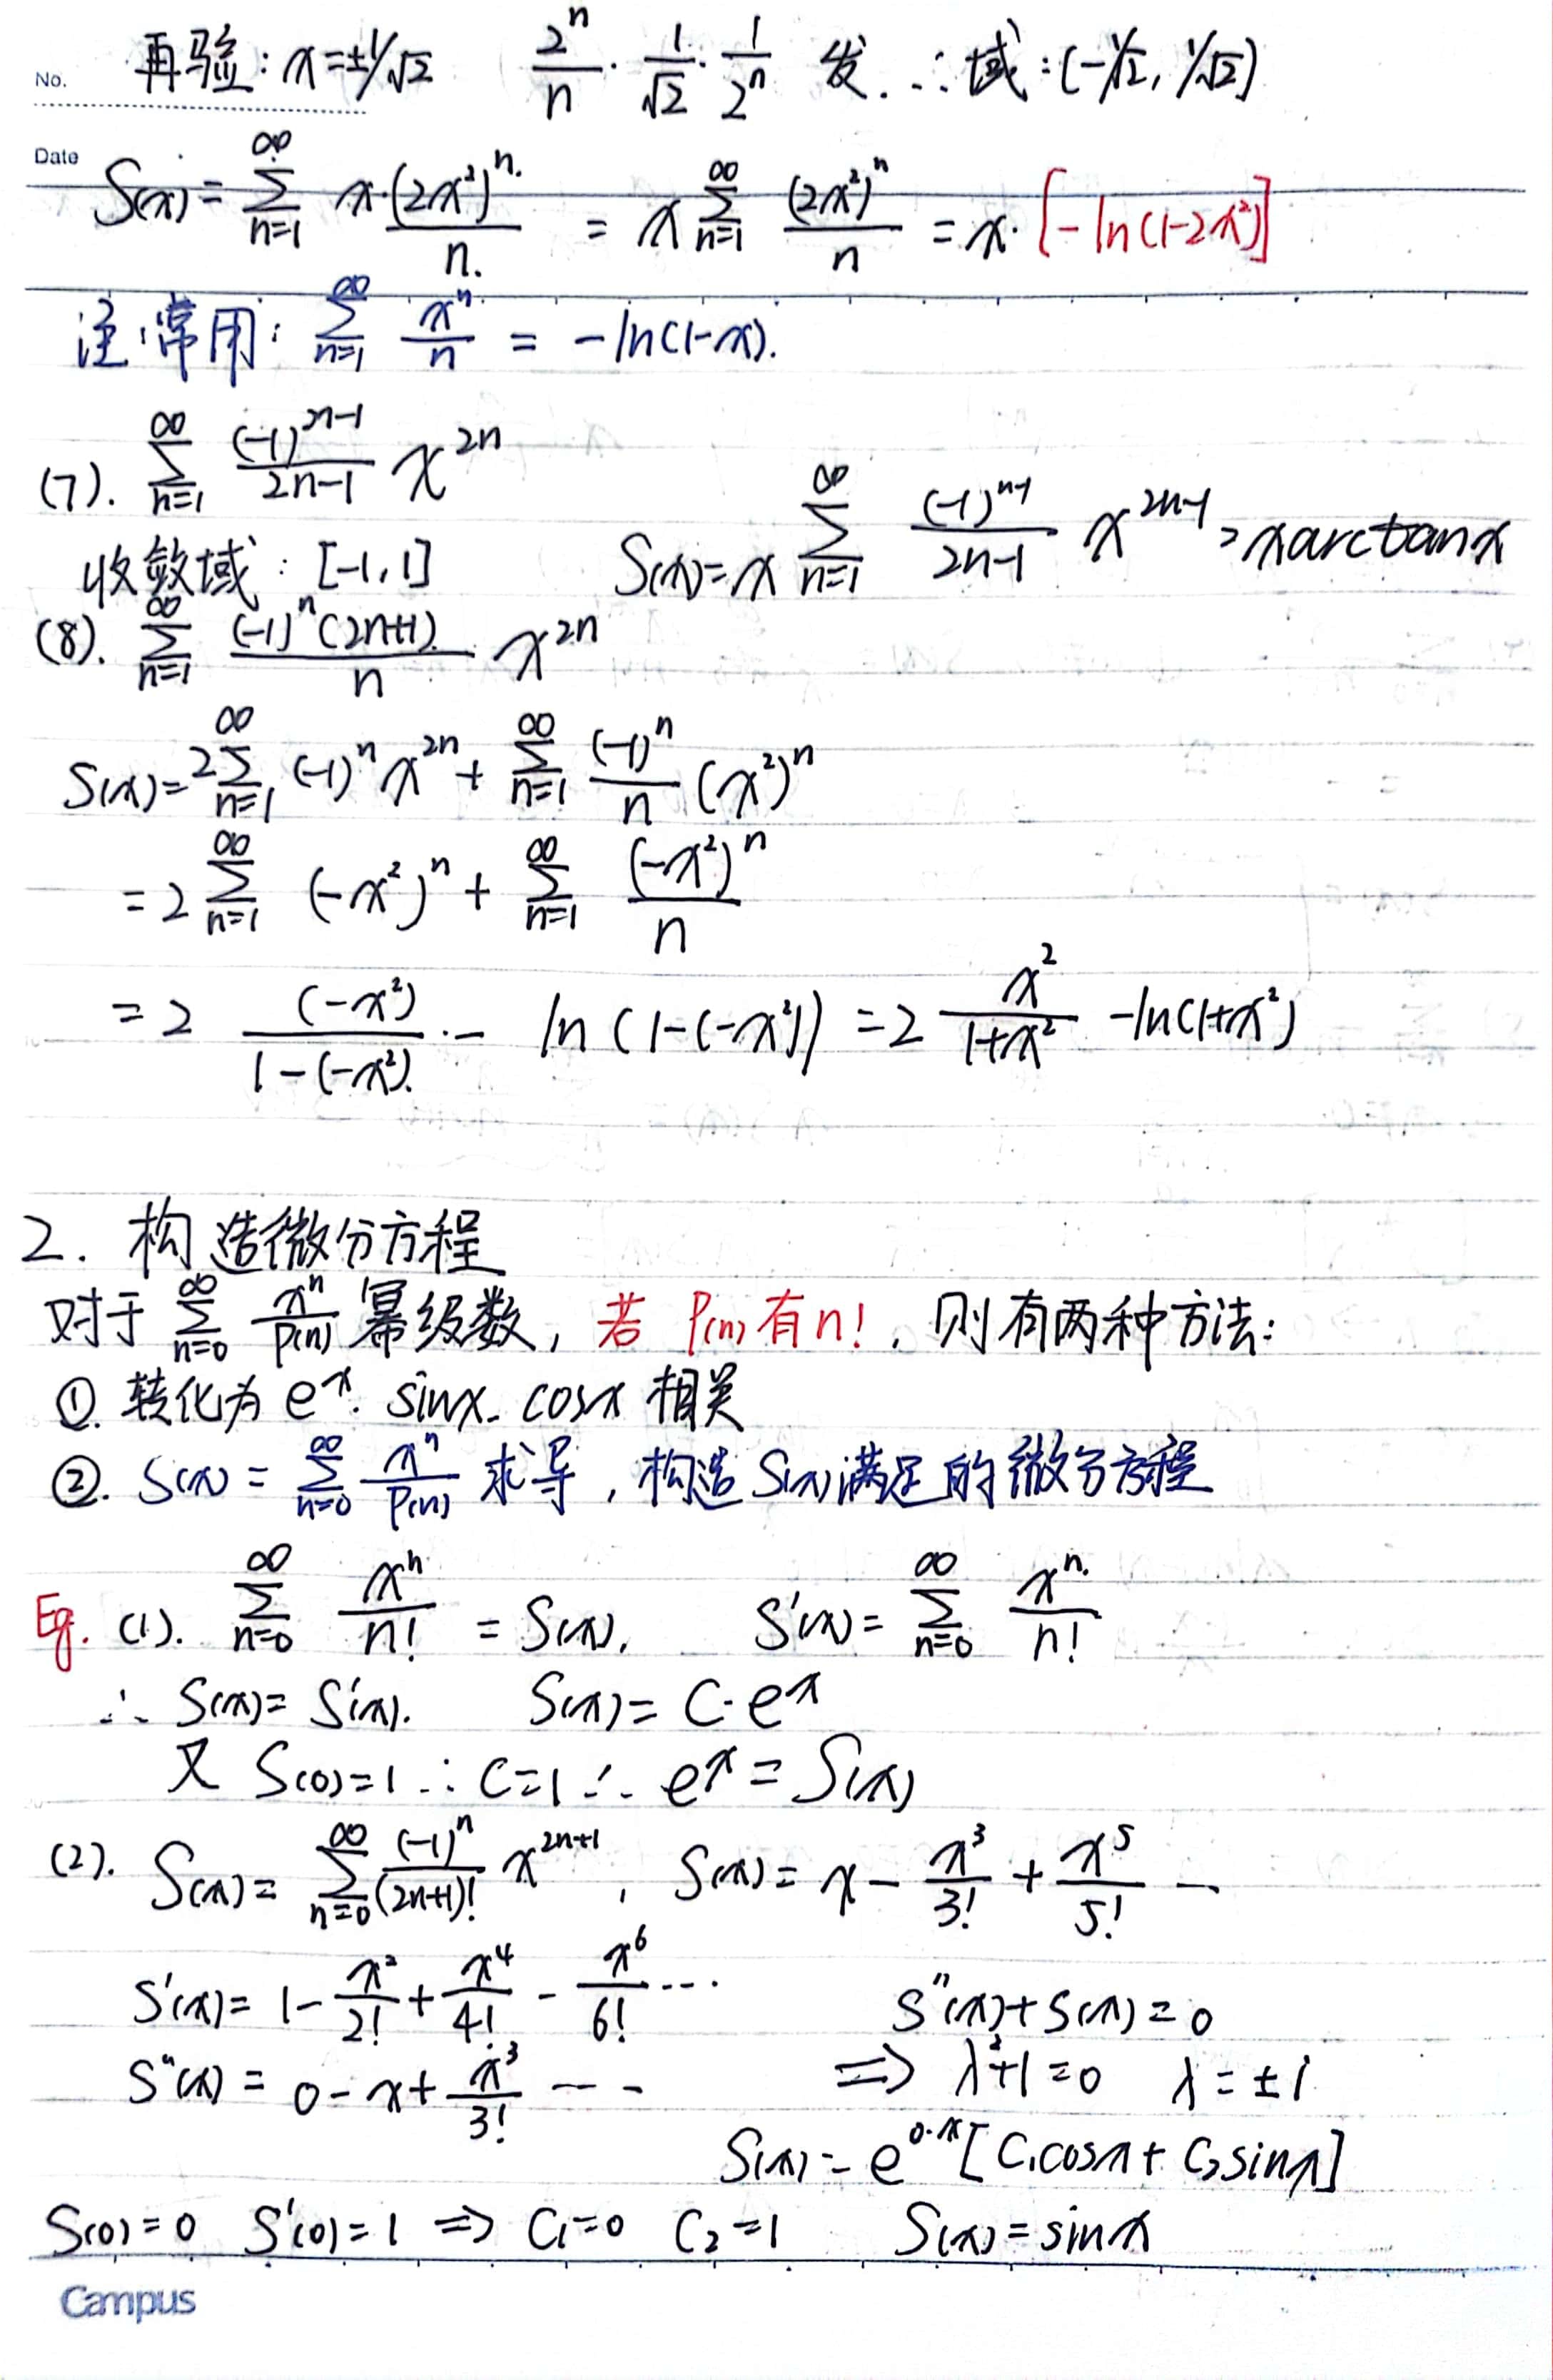 No.
再验: x=±1/√2    2^n/n · 1/√2 · 1/2^n 发. ∴ 域: (-1/√2, 1/√2)
Date
S(x) = ∑_{n=1}^{∞} x·(2x²)^n/n. = x ∑_{n=1}^{∞} (2x²)^n/n = x·[-ln(1-2x²)]
注:常用: ∑_{n=1}^{∞} x^n/n = -ln(1-x).
(7). ∑_{n=1}^{∞} (-1)^{2n-1}/(2n-1) x^{2n}
收敛域: [-1,1]    S(x)= x ∑_{n=1}^{∞} (-1)^{n-1}/(2n-1) x^{2n-1} = xarctanx
(8). ∑_{n=1}^{∞} (-1)^n(2n+1)/n x^{2n}
S(x)= 2∑_{n=1}^{∞} (-1)^n x^{2n} + ∑_{n=1}^{∞} (-1)^n/n (x²)^n
= 2 ∑_{n=1}^{∞} (-x²)^n + ∑_{n=1}^{∞} (-x²)^n/n
= 2 (-x²)/(1-(-x²)) - ln(1-(-x²)) = 2 x²/(1+x²) - ln(1+x²)
2. 构造微分方程
对于 ∑_{n=0}^{∞} x^n/P(n) 幂级数, 若 P(n)有n!, 则有两种方法:
①. 转化为 e^x. sinx. cosx 相关
②. S(x) = ∑_{n=0}^{∞} x^n/P(n) 求导, 构造S(x)满足的微分方程
Eg. (1). ∑_{n=0}^{∞} x^n/n! = S(x).    S'(x)= ∑_{n=0}^{∞} x^n/n!
∴ S(x)= S'(x).    S(x)= C·e^x
又 S(0)=1 ∴ C=1 ∴ e^x = S(x)
(2). S(x)= ∑_{n=0}^{∞} (-1)^n/(2n+1)! x^{2n+1}, S(x)= x - x³/3! + x⁵/5! - ‥
S'(x)= 1 - x²/2! + x⁴/4! - x⁶/6! ...    S''(x)+S(x)=0
S''(x) = 0 - x + x³/3! ---    ⟹ λ²+1=0 λ=±i
S(x) = e^{0·x}[C₁cosx + C₂sinx]
S(0)=0 S'(0)=1 ⟹ C₁=0 C₂=1    S(x)=sinx
Campus